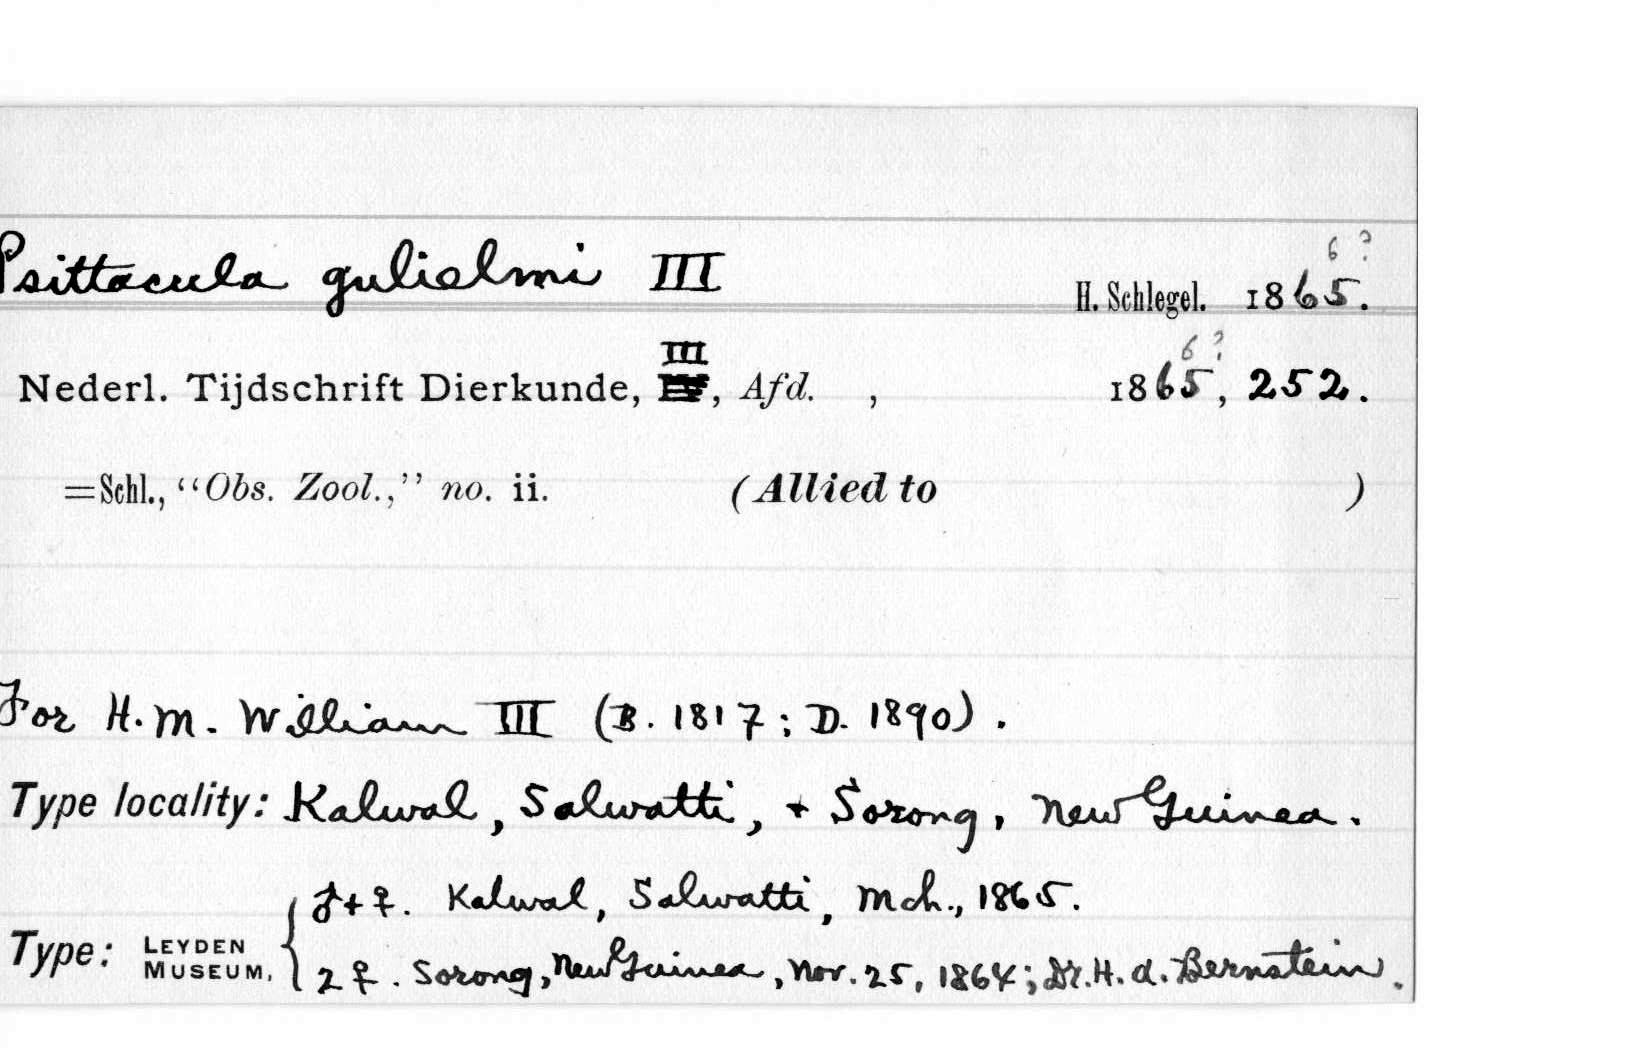 Psittacula gulielmi III H. Schlegel. 1865. 6 ?
Nederl. Tijdschrift Dierkunde, III, Afd. , 1865, 252. 6 ?
=Schl., “Obs. Zool.,” no. ii. (Allied to )
For H. M. William III (B. 1817; D. 1890).
Type locality: Kalwal, Salwatti, + Sorong, New Guinea.
Type: LEYDEN MUSEUM, ♂ + ♀. Kalwal, Salwatti, Mch., 1865.
2 ♀. Sorong, New Guinea, Nov. 25, 1864; Dr. H. A. Bernstein.